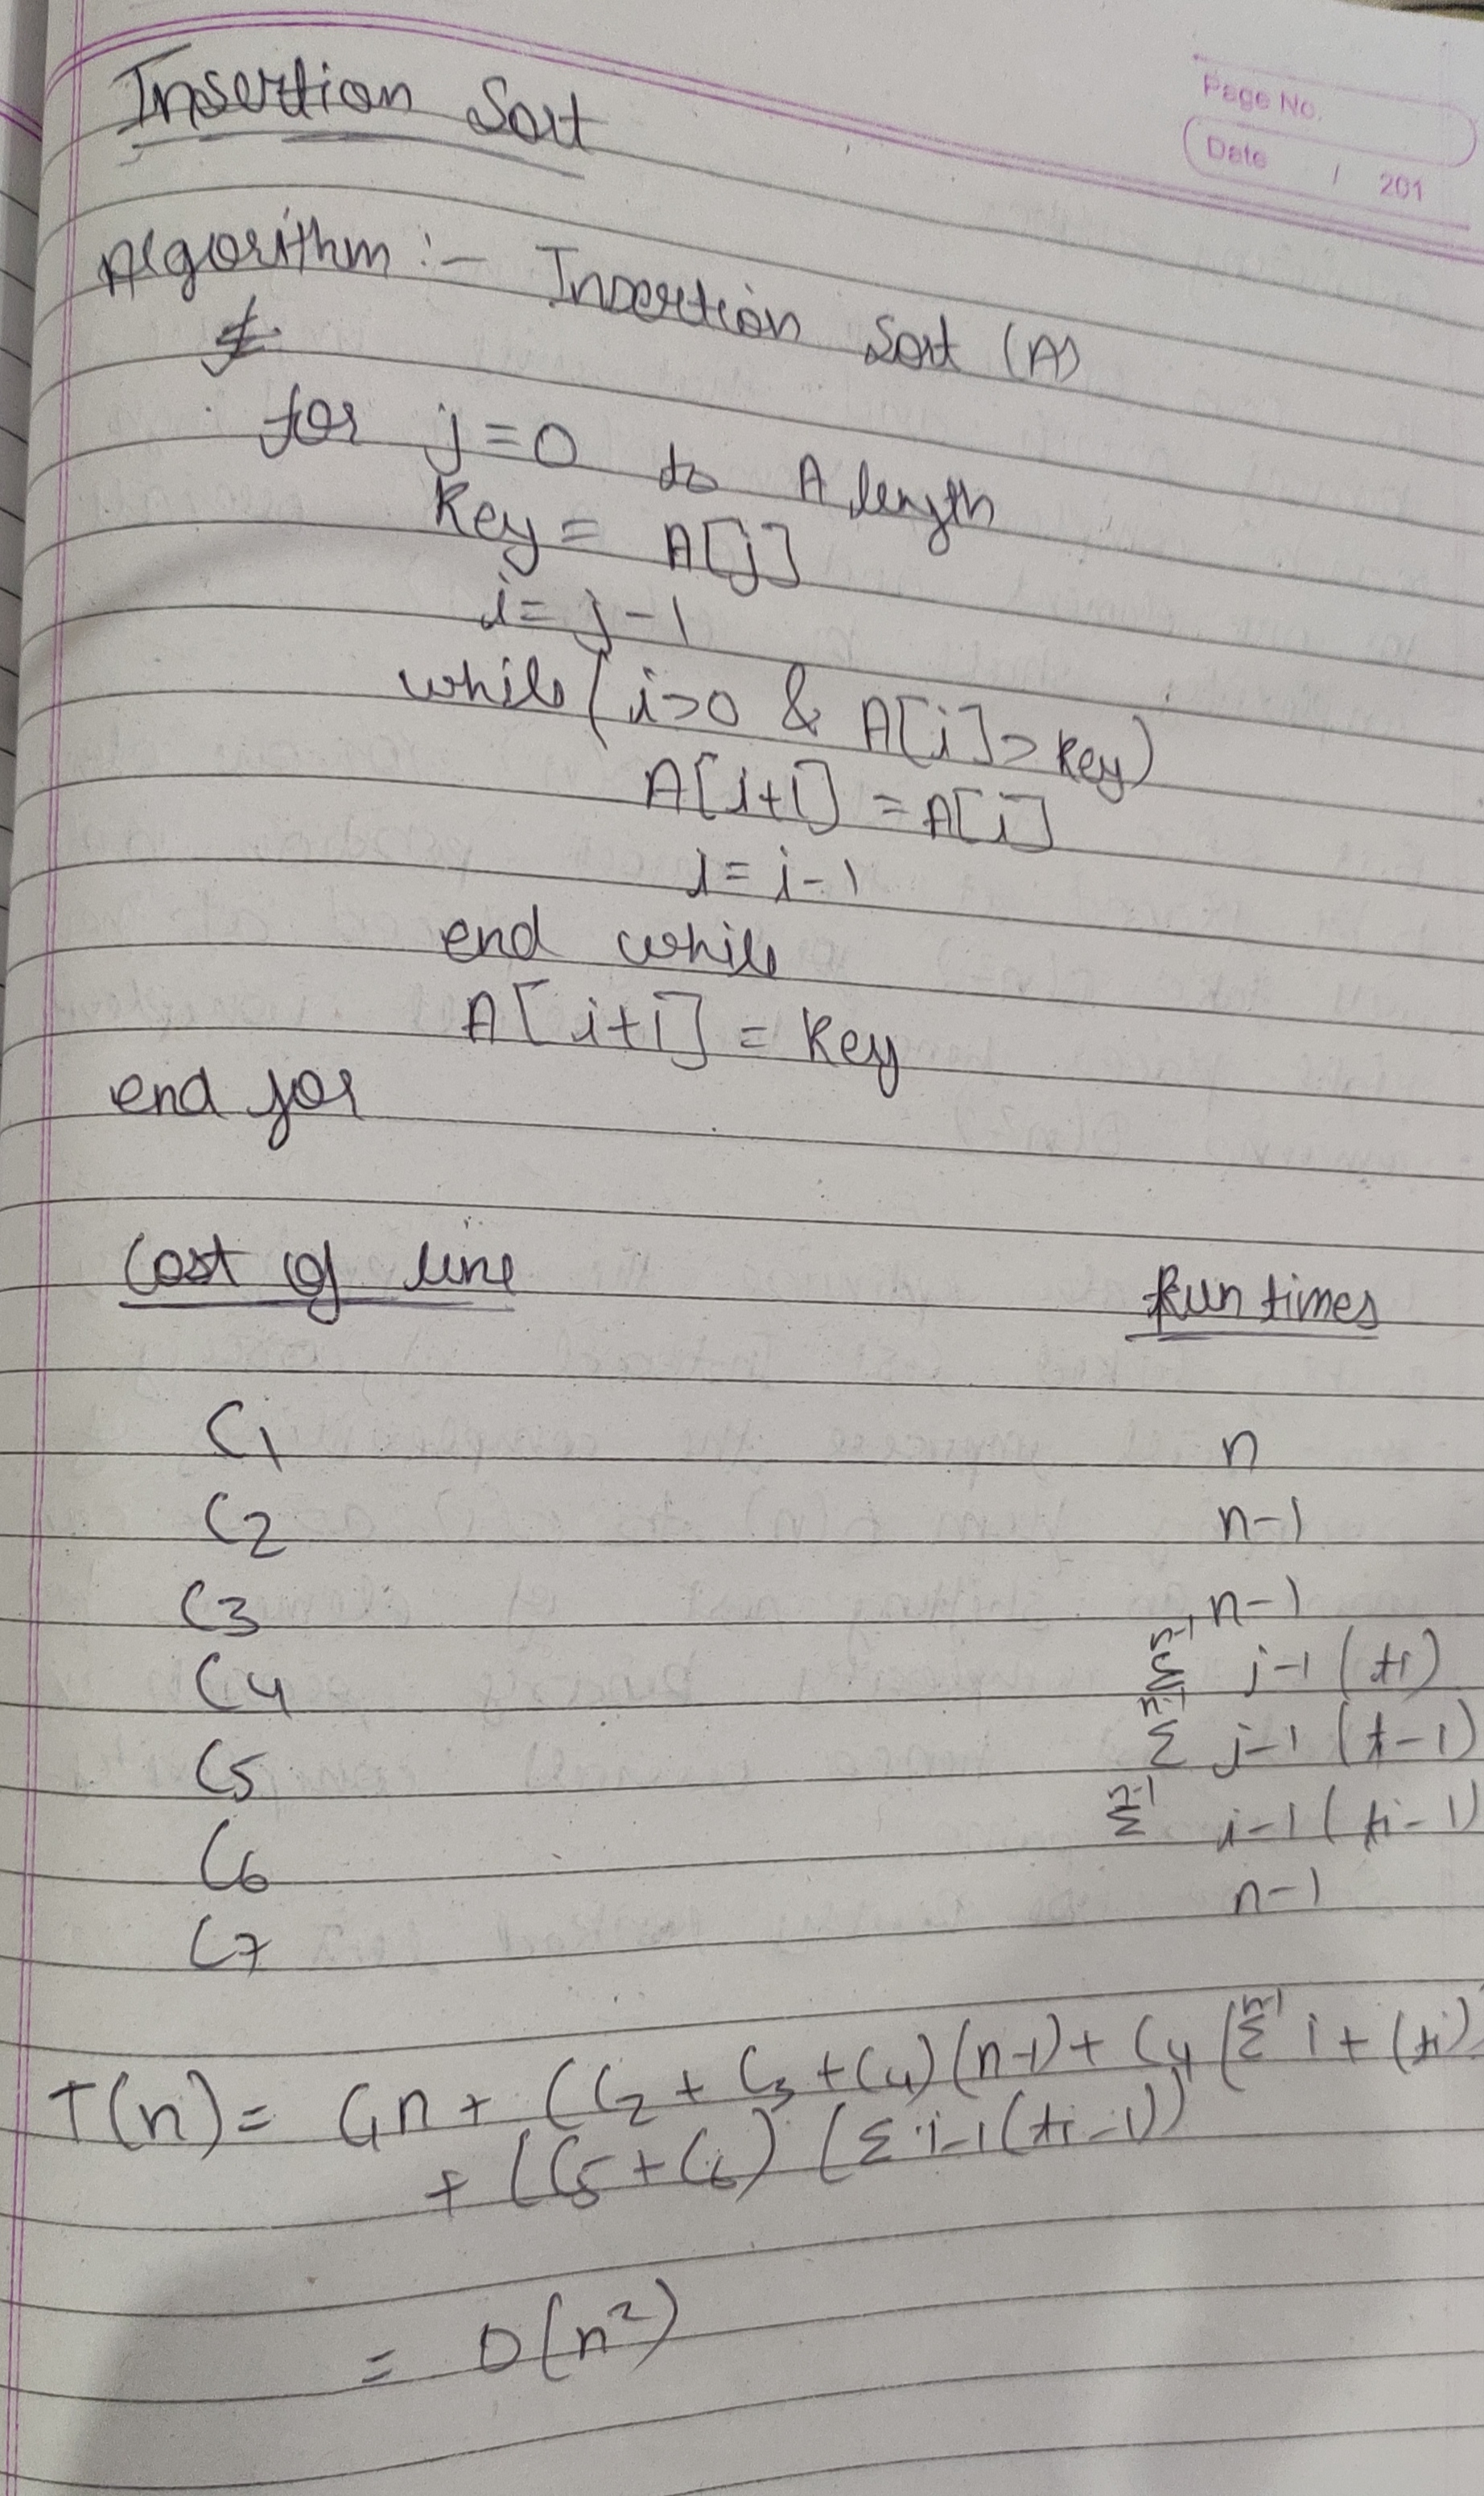 Page No.
Date / 201
Insertion Sort
Algorithm :- Insertion Sort (A)
for j=0 to A length
Key = A[j]
i= j-1
while ( i>0 & A[i]>Key)
A[i+1] = A[i]
i= i-1
end while
A[i+1] = Key
end for
Cost of line Run times
C1 n
C2 n-1
C3 n-1
C4 n-1 Σ j-1 (ti)
C5 n-1 Σ j-1 (t-1)
C6 n-1 Σ i-1 (ti-1)
C7 n-1
T(n)= C1n+ (C2 + C3 + C4) (n-1)+ C4 (n-1 Σ i+ (ti)
+ (C5+C6) (Σ i-1(ti-1))
= O(n²)